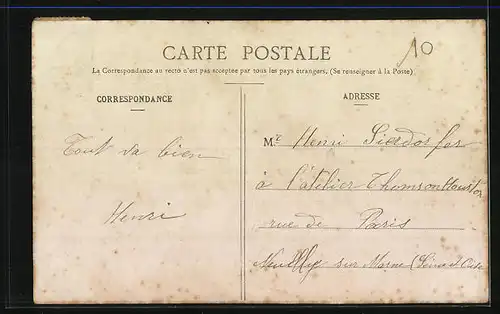 10
CARTE POSTALE
La Correspondance au recto n'est pas acceptée par tous les pays étrangers. (Se renseigner à la Poste)
CORRESPONDANCE
ADRESSE
Tout va bien
Henri
Mr Henri
à l'atelier Thomson Houston
rue de Paris
Neuilly sur Marne (Seine et Oise